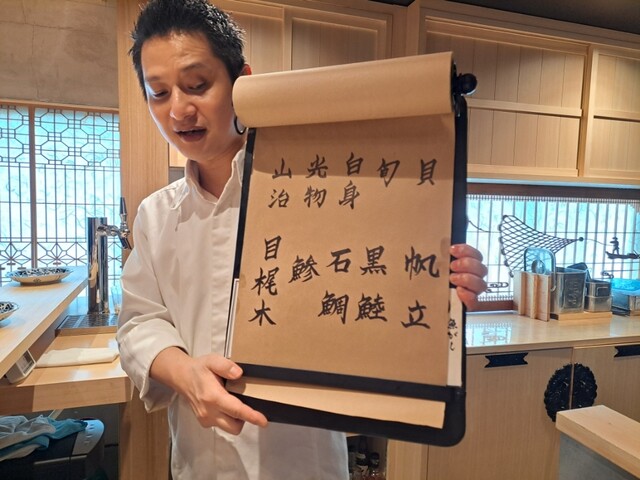 貝 帆立
旬 黒鯥
白身 石鯛
光物 鯵
山治 目梶木